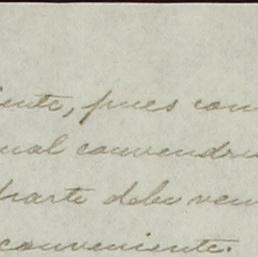 iente, pues com
ual convendri
parte debe ven
conveniente.